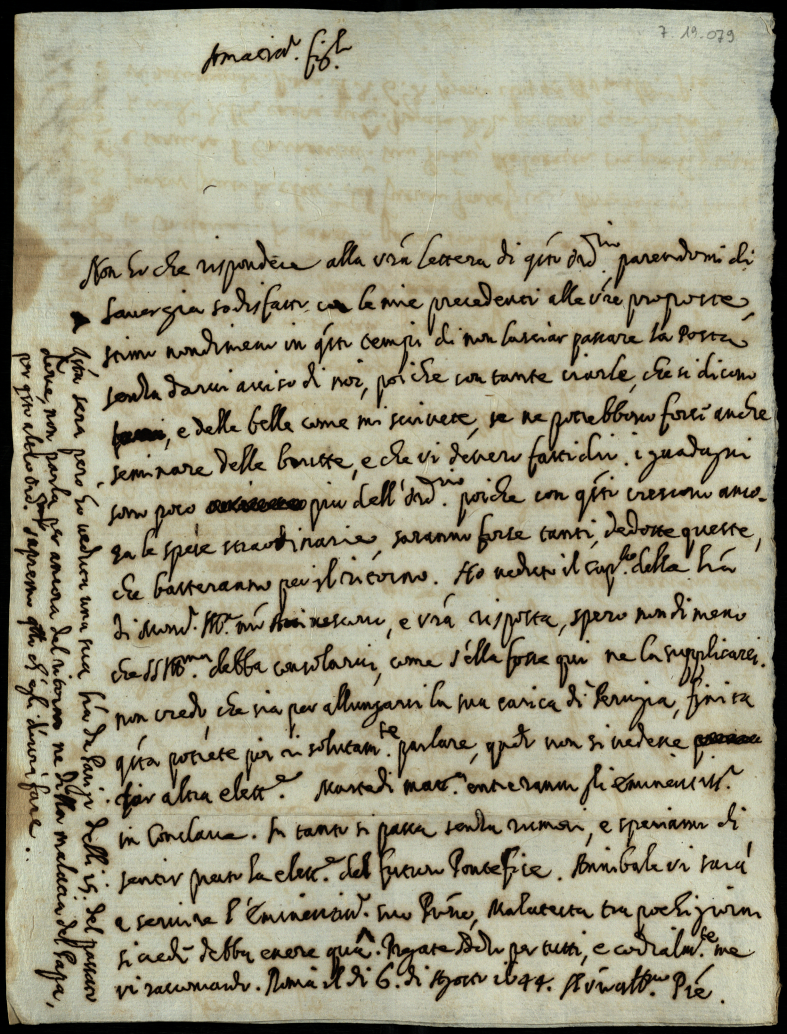 7. 19.079
Amatiss. figl.
Non ho che rispondere alla vrã lettera di qsto ord.rio parendomi di
haver gia sodisfatto con le mie precedenti alle vrẽ proposte,
stimo nondimeno in qsti tempi di non lasciar passare la Posta
senza darvi aviso di noi, poi che con tante ciarle, che si dicono
e delle belle come mi scrivete, se ne potrebbono forsi anche
seminare delle brutte, e che vi dessero fastidio. i guadagni
sono poco più dell'ord.rio poiche con qsti crescono anco-
ra le spese straordinarie, saranno forse tanti, dedotte queste,
che basteranno per il ritorno. Ho veduto il cap.lo della lrã
di Mons. e vrã risposta, spero nondimeno
che SS Ill.ma debba consolarvi, come s'ella fosse qui ne la supplicarei.
non credo, che sia per allungarsi la sua carica di Perugia, finita
qsta potrete poi risolutam.te parlare, qndo non si vedesse
far altra elett.e Martedi matt.a entreranno gli Eminentiss.
in Conclave. In tanto si passa senza rumori, e speriamo di
sentir presto la elett.e del futuro Pontefice. Annibale vi sarà
a servire l'Eminentiss. suo Prõne, Malatesta tra pochi giorni
si crede debba essere qua. Pregate Dio per tutti, e cordialm.te me
vi raccomando. Roma il di 6. di Agosto 1644. Prẽ.
Qsta sera però ho veduto una sua lrã da Parigi delli 15. del passato
dove, non parla per ancora del ritorno ne della malatia del Papa,
per qsto altro ord.rio sapremo qllo ch'egli dovrà fare.